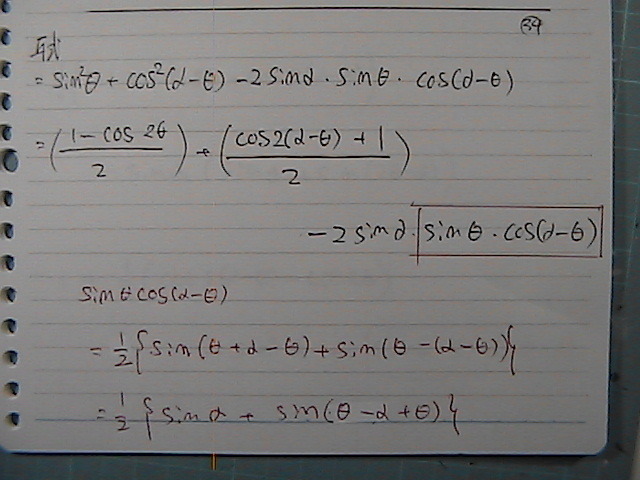 39
与式
= sin²θ + cos²(α-θ) - 2 sinα · sinθ · cos(α-θ)
= ( (1 - cos 2θ) / 2 ) + ( (cos2(α-θ) + 1) / 2 )
- 2 sinα · sinθ · cos(α-θ)
sinθcos(α-θ)
= 1/2 { sin(θ+α-θ) + sin(θ-(α-θ)) }
= 1/2 { sinα + sin(θ-α+θ) }